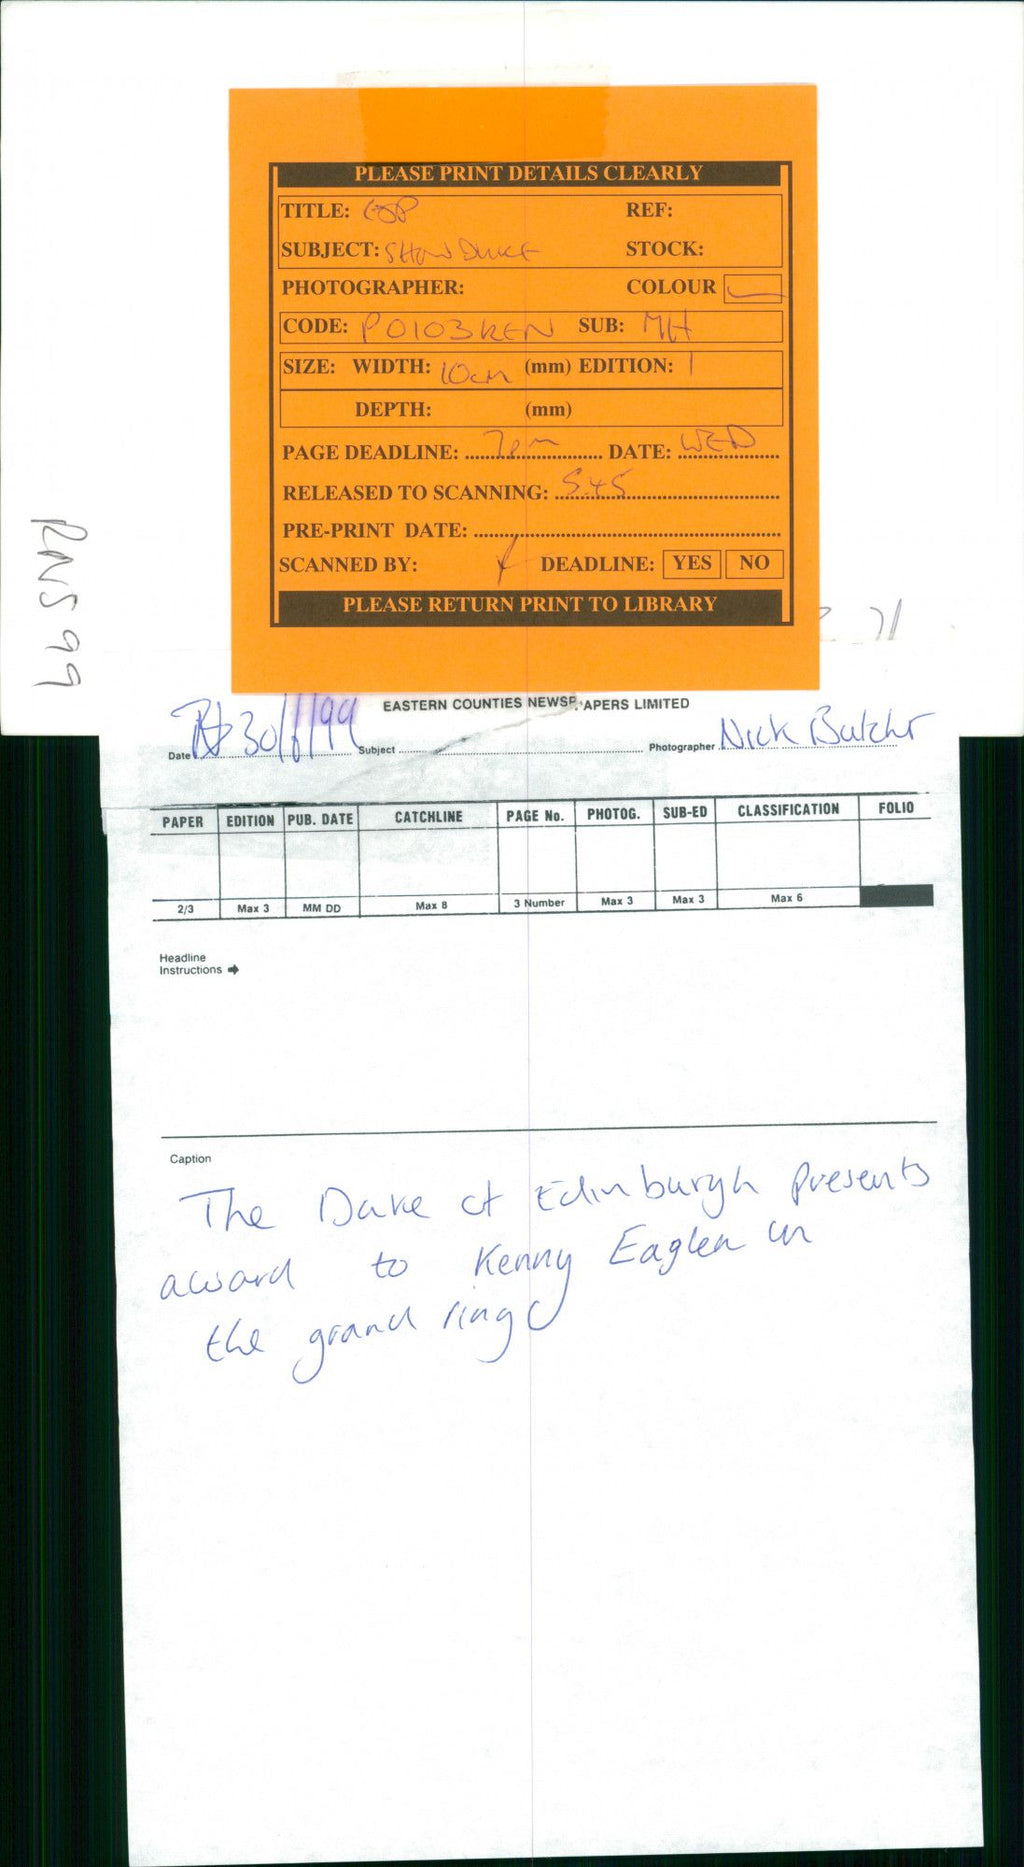 PLEASE PRINT DETAILS CLEARLY
TITLE: EDP REF:
SUBJECT: SHOW DUKE STOCK:
PHOTOGRAPHER: COLOUR
CODE: P0103KEN SUB: MH
SIZE: WIDTH: 10cm (mm) EDITION: 1
DEPTH: (mm)
PAGE DEADLINE: 7pm DATE: WED
RELEASED TO SCANNING: 5.45
PRE-PRINT DATE:
SCANNED BY: DEADLINE: YES NO
PLEASE RETURN PRINT TO LIBRARY
RNS 99
EASTERN COUNTIES NEWSPAPERS LIMITED
Date 30/6/99 Subject Photographer Nick Butcher
PAPER EDITION PUB. DATE CATCHLINE PAGE No. PHOTOG. SUB-ED CLASSIFICATION FOLIO
2/3 Max 3 MM DD Max 8 3 Number Max 3 Max 3 Max 6
Headline
Instructions
Caption
The Duke of Edinburgh presents
award to Kenny Eaglen in
the grand ring